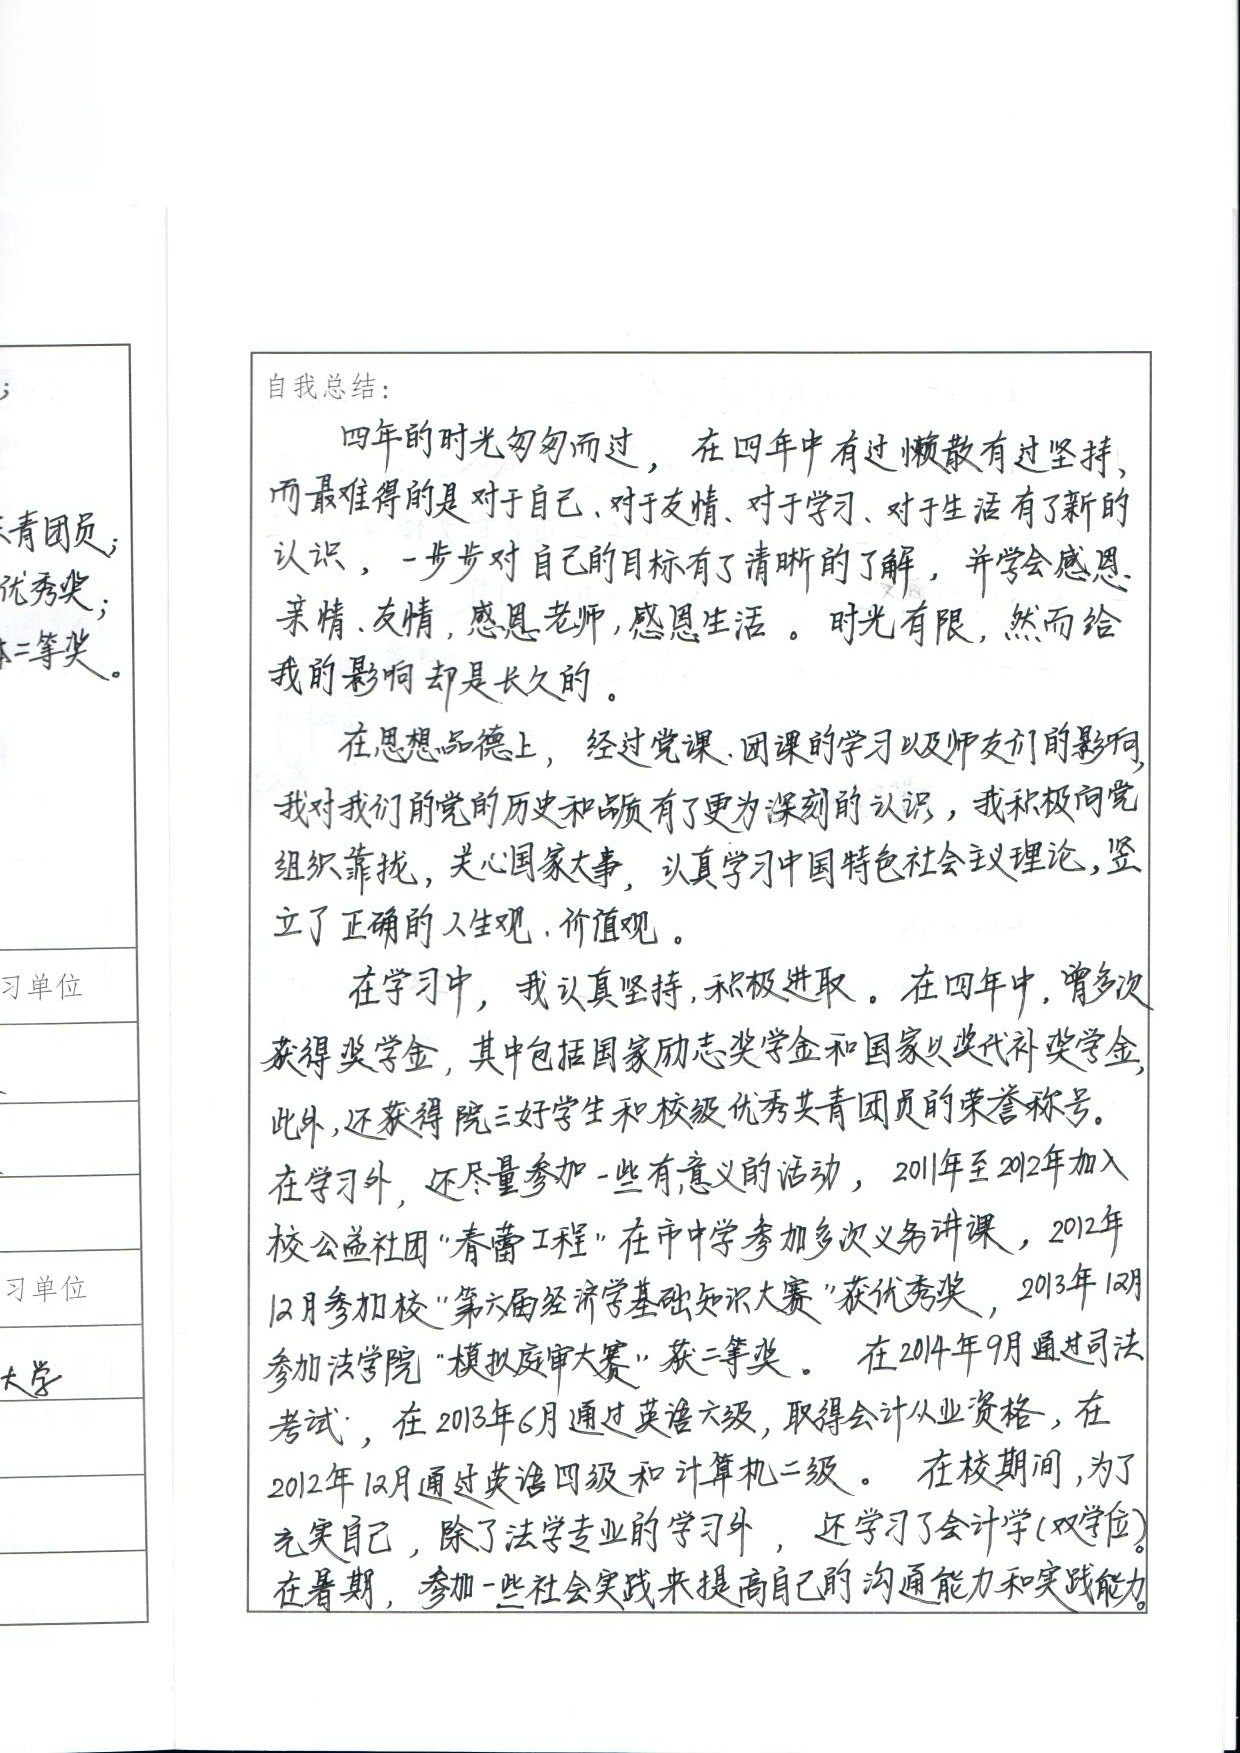 ；
青团员；
优秀奖；
二等奖。
习单位
习单位
大学
自我总结：
四年的时光匆匆而过，在四年中有过懒散有过坚持，
而最难得的是对于自己、对于友情、对于学习、对于生活有了新的
认识，一步步对自己的目标有了清晰的了解，并学会感恩
亲情、友情，感恩老师，感恩生活。时光有限，然而给
我的影响却是长久的。
在思想品德上，经过党课、团课的学习以及师友们的影响，
我对我们的党的历史和品质有了更为深刻的认识，我积极向党
组织靠拢，关心国家大事，认真学习中国特色社会主义理论，竖
立了正确的人生观、价值观。
在学习中，我认真坚持，积极进取。在四年中，曾多次
获得奖学金，其中包括国家励志奖学金和国家以奖代补奖学金，
此外，还获得院三好学生和校级优秀共青团员的荣誉称号。
在学习外，还尽量参加一些有意义的活动，2011年至2012年加入
校公益社团“春蕾工程”在市中学参加多次义务讲课，2012年
12月参加校“第六届经济学基础知识大赛”获优秀奖，2013年12月
参加法学院“模拟庭审大赛”获二等奖。在2014年9月通过司法
考试，在2013年6月通过英语六级，取得会计从业资格，在
2012年12月通过英语四级和计算机二级。在校期间，为了
充实自己，除了法学专业的学习外，还学习了会计学（双学位）。
在暑期，参加一些社会实践来提高自己的沟通能力和实践能力。